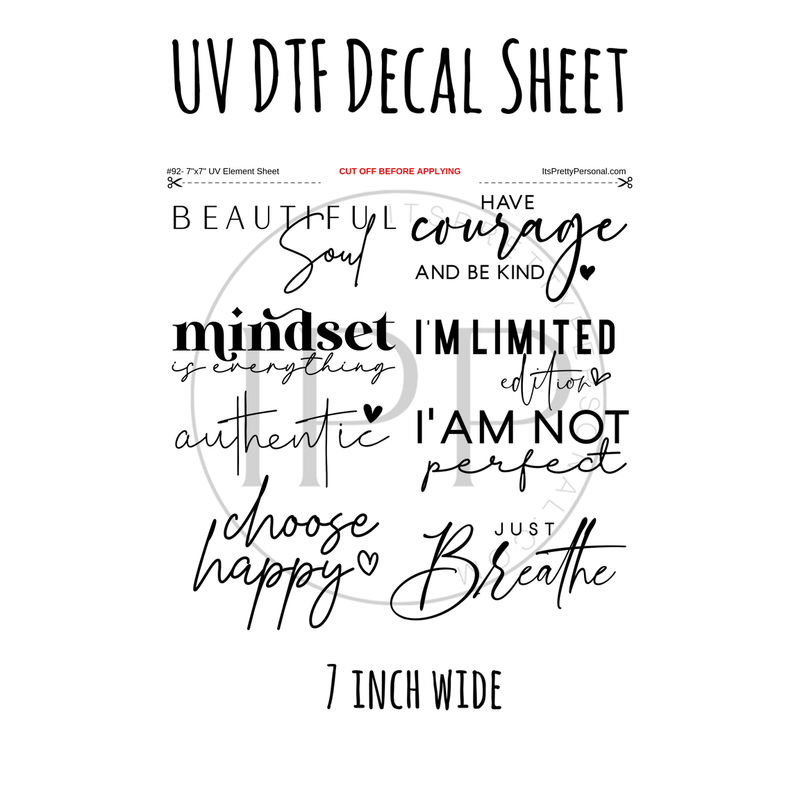 UV DTF DECAL SHEET
#92- 7"x7" UV Element Sheet CUT OFF BEFORE APPLYING ItsPrettyPersonal.com
BEAUTIFUL
Soul
HAVE
courage
AND BE KIND
mindset
is everything
I'M LIMITED
edition
authentic
I'AM NOT
perfect
choose
happy
JUST
Breathe
IPP
ITSPRETTYPERSONAL.COM
7 INCH WIDE